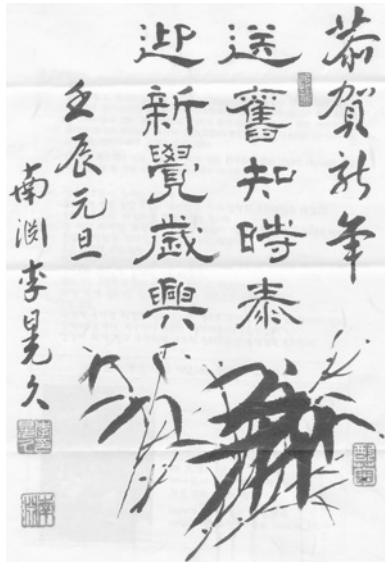 恭賀新年
送舊知時泰
迎新覺歲興
壬辰元旦
南淵李晃久